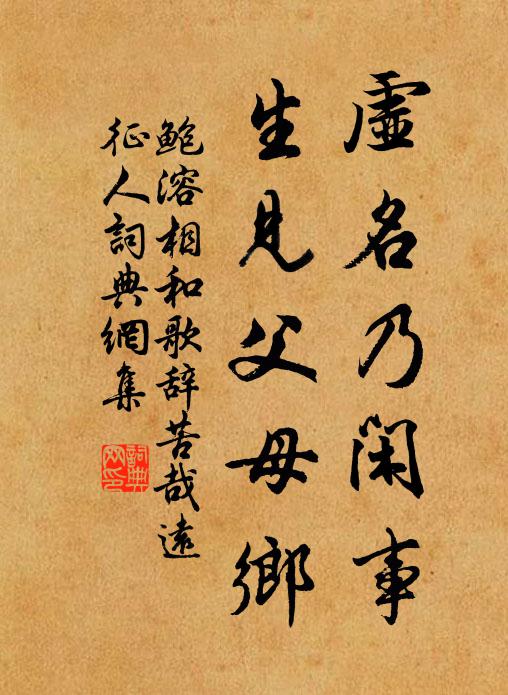 虛名乃閑事
生見父母鄉
鮑溶相和歌辞苦哉遠
征人詞典網集
詞典
网印